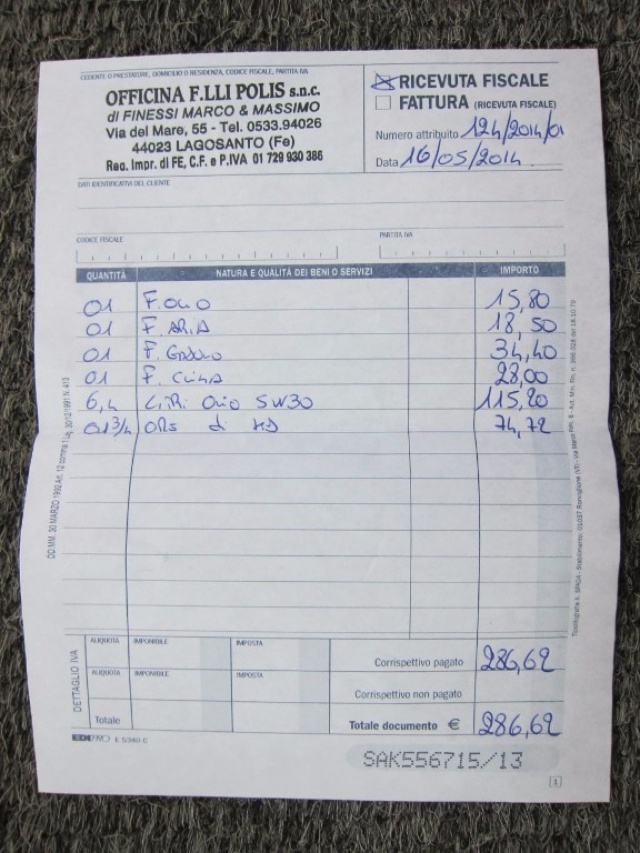 CEDENTE O PRESTATORE, DOMICILIO O RESIDENZA, CODICE FISCALE, PARTITA IVA
OFFICINA F.LLI POLIS s.n.c.
di FINESSI MARCO & MASSIMO
Via del Mare, 55 - Tel. 0533.94026
44023 LAGOSANTO (Fe)
Reg. Impr. di FE, C.F. e P.IVA 01 729 930 386
RICEVUTA FISCALE
FATTURA (RICEVUTA FISCALE)
Numero attribuito 124/2014/01
Data 16/05/2014
DATI IDENTIFICATIVI DEL CLIENTE
CODICE FISCALE PARTITA IVA
QUANTITÀ NATURA E QUALITÀ DEI BENI O SERVIZI IMPORTO
01 F. OLIO 15,80
01 F. ARIA 18,50
01 F. GASOLIO 34,40
01 F. CLIMA 28,00
6,4 LITRI OLIO 5W30 115,20
01 3/4 ORE di MD 74,72
DETTAGLIO IVA
ALIQUOTA IMPONIBILE IMPOSTA
ALIQUOTA IMPONIBILE IMPOSTA
Totale
Corrispettivo pagato 286,62
Corrispettivo non pagato
Totale documento € 286,62
E 5340 C
SAK556715/13
1